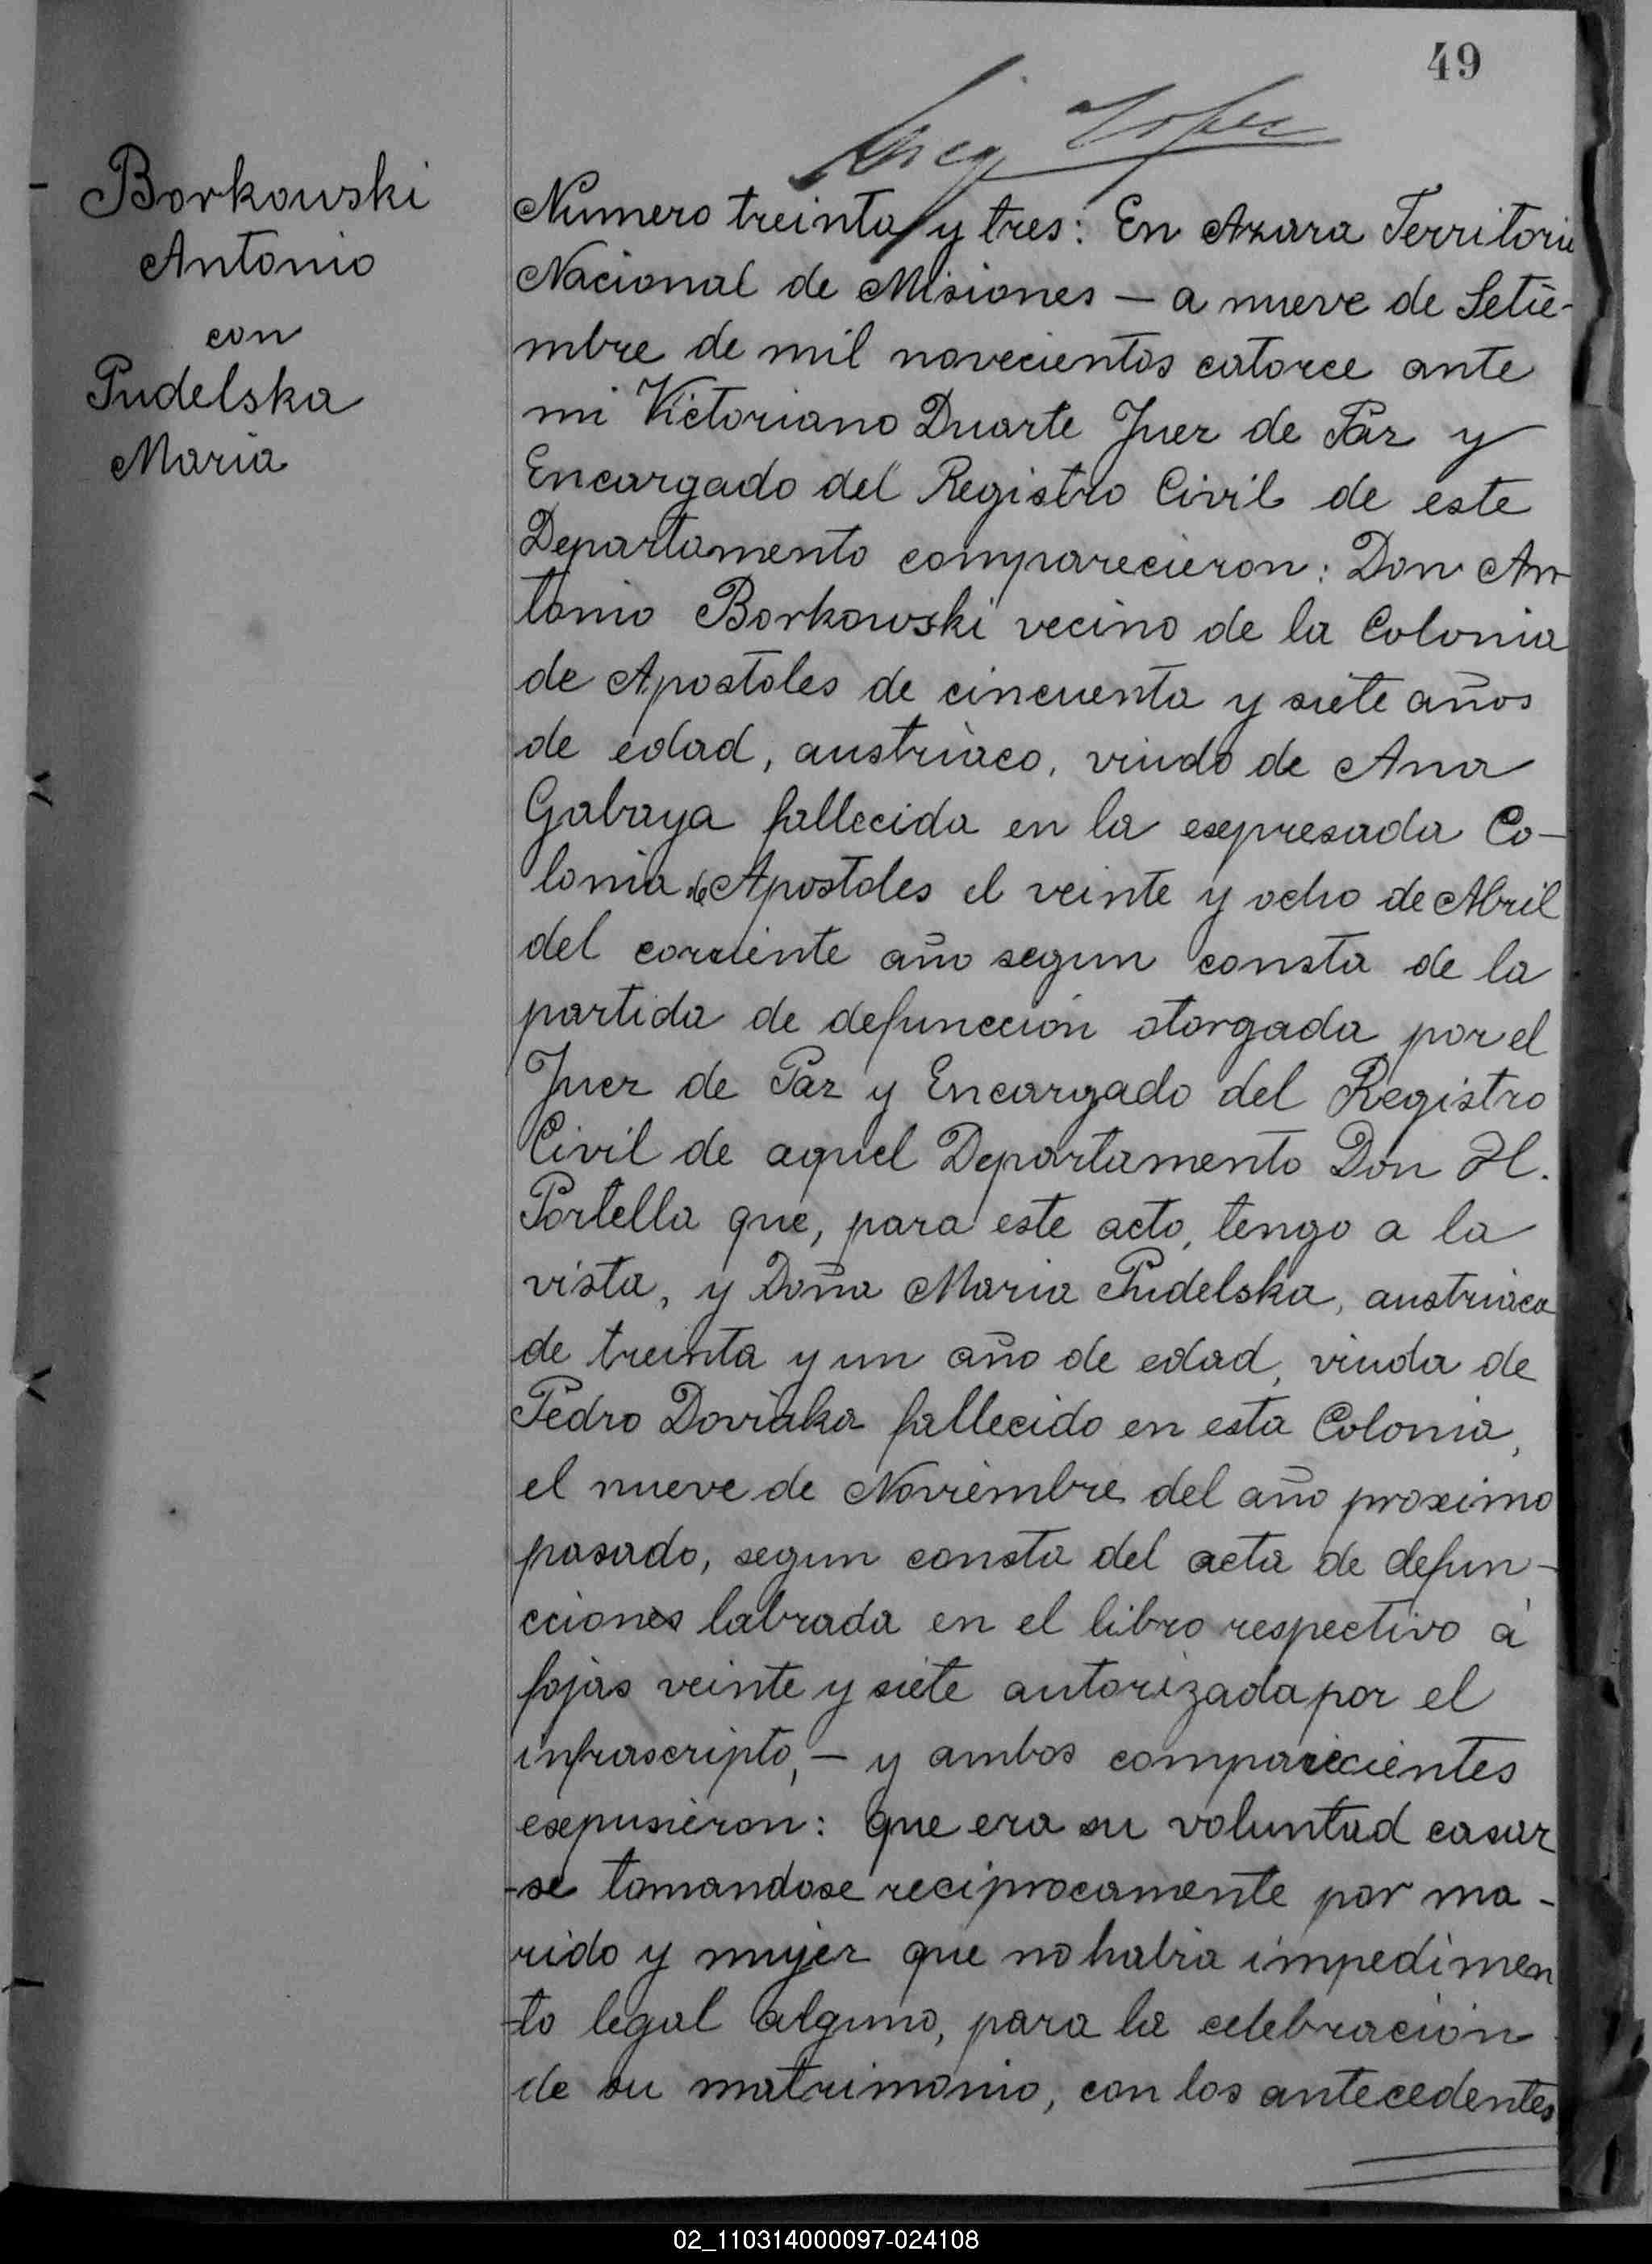 49
Borkowski
Antonio
con
Pudelska
Maria
Numero treinta y tres: En Azara Territorio
Nacional de Misiones — a nueve de Setie-
mbre de mil novecientos catorce ante
mi Victoriano Duarte Juez de Paz y
Encargado del Registro Civil de este
Departamento comparecieron: Don An
tonio Borkowski vecino de la Colonia
de Apostoles de cincuenta y siete años
de edad, austriaco, viudo de Ana
Gabaya fallecida en la expresada Co-
lonia de Apostoles el veinte y ocho de Abril
del corriente año segun consta de la
partida de defuncción otorgada por el
Juez de Paz y Encargado del Registro
Civil de aquel Departamento Don H.
Portella que, para este acto, tengo a la
vista, y Doña Maria Pudelska, austriaca
de treinta y un año de edad, viuda de
Pedro Doviaka fallecido en esta Colonia,
el nueve de Noviembre del año proximo
pasado, segun consta del acta de defun-
cciones labrada en el libro respectivo á
fojas veinte y siete autorizada por el
infrascripto, — y ambos comparecientes
expusieron: que era su voluntad casar
-se tomandose reciprocamente por ma-
rido y mujer que no habia impedimen
-to legal alguno, para la celebración
de su matrimonio, con los antecedentes
02_110314000097-024108